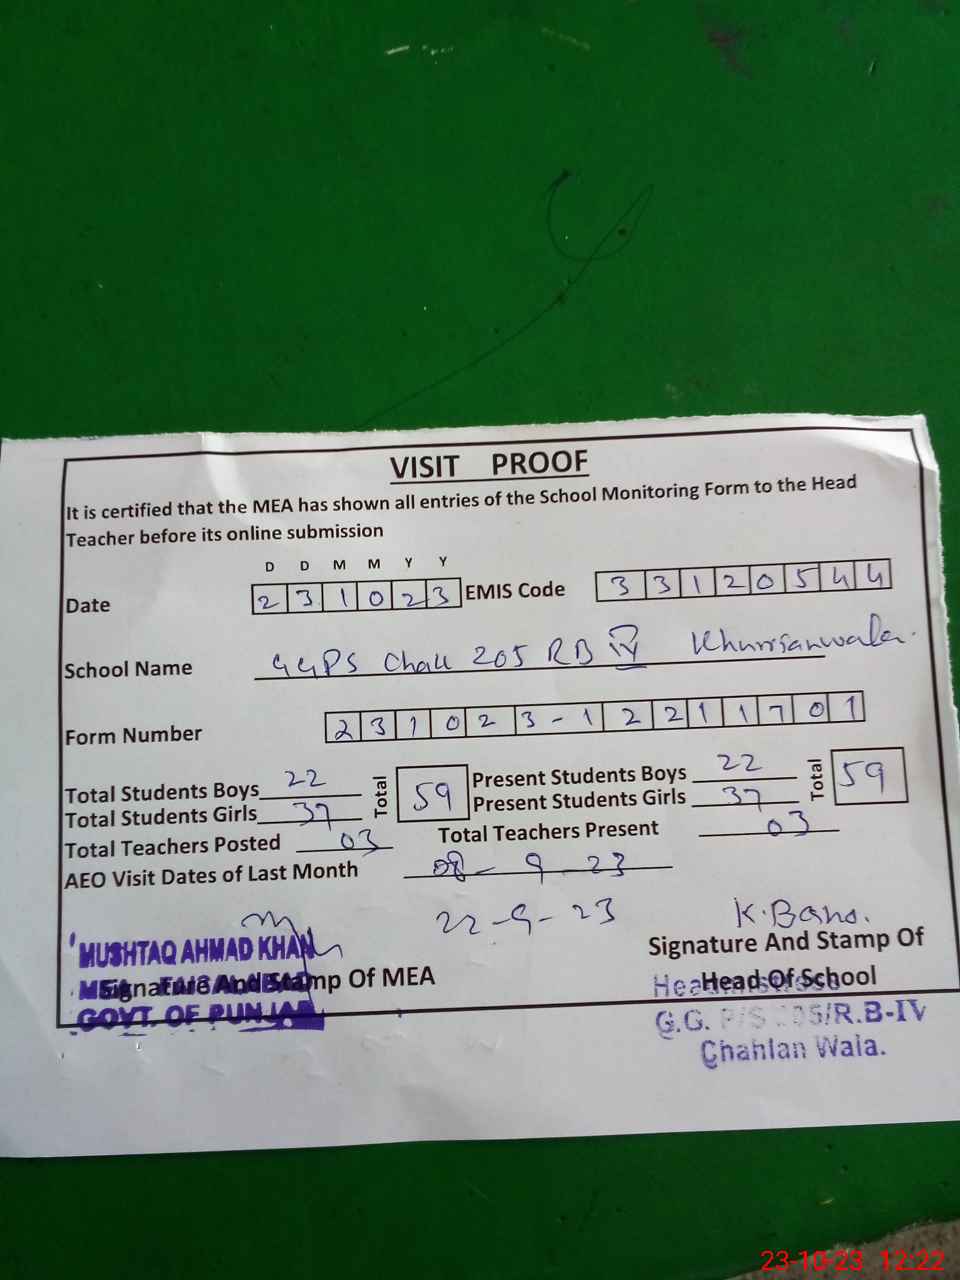 VISIT PROOF
It is certified that the MEA has shown all entries of the School Monitoring Form to the Head
Teacher before its online submission
D D M M Y Y
Date 2 3 1 0 2 3 EMIS Code 3 3 1 2 0 5 4 4
School Name GGPS Chak 205 RB IV Khurrianwala.
Form Number 2 3 1 0 2 3 - 1 2 2 1 1 7 0 1
Total Students Boys 22 Total 59 Present Students Boys 22 Total 59
Total Students Girls 37 Present Students Girls 37
Total Teachers Posted 03 Total Teachers Present 03
AEO Visit Dates of Last Month 08-9-23
22-9-23
K.Bano.
MUSHTAQ AHMAD KHAN
Signature And Stamp Of MEA
MEA FAISALABAD
GOVT. OF PUNJAB
Signature And Stamp Of
Head Of School
Headmistress
G.G. P/S 205/R.B-IV
Chahlan Wala.
23-10-23 12:22